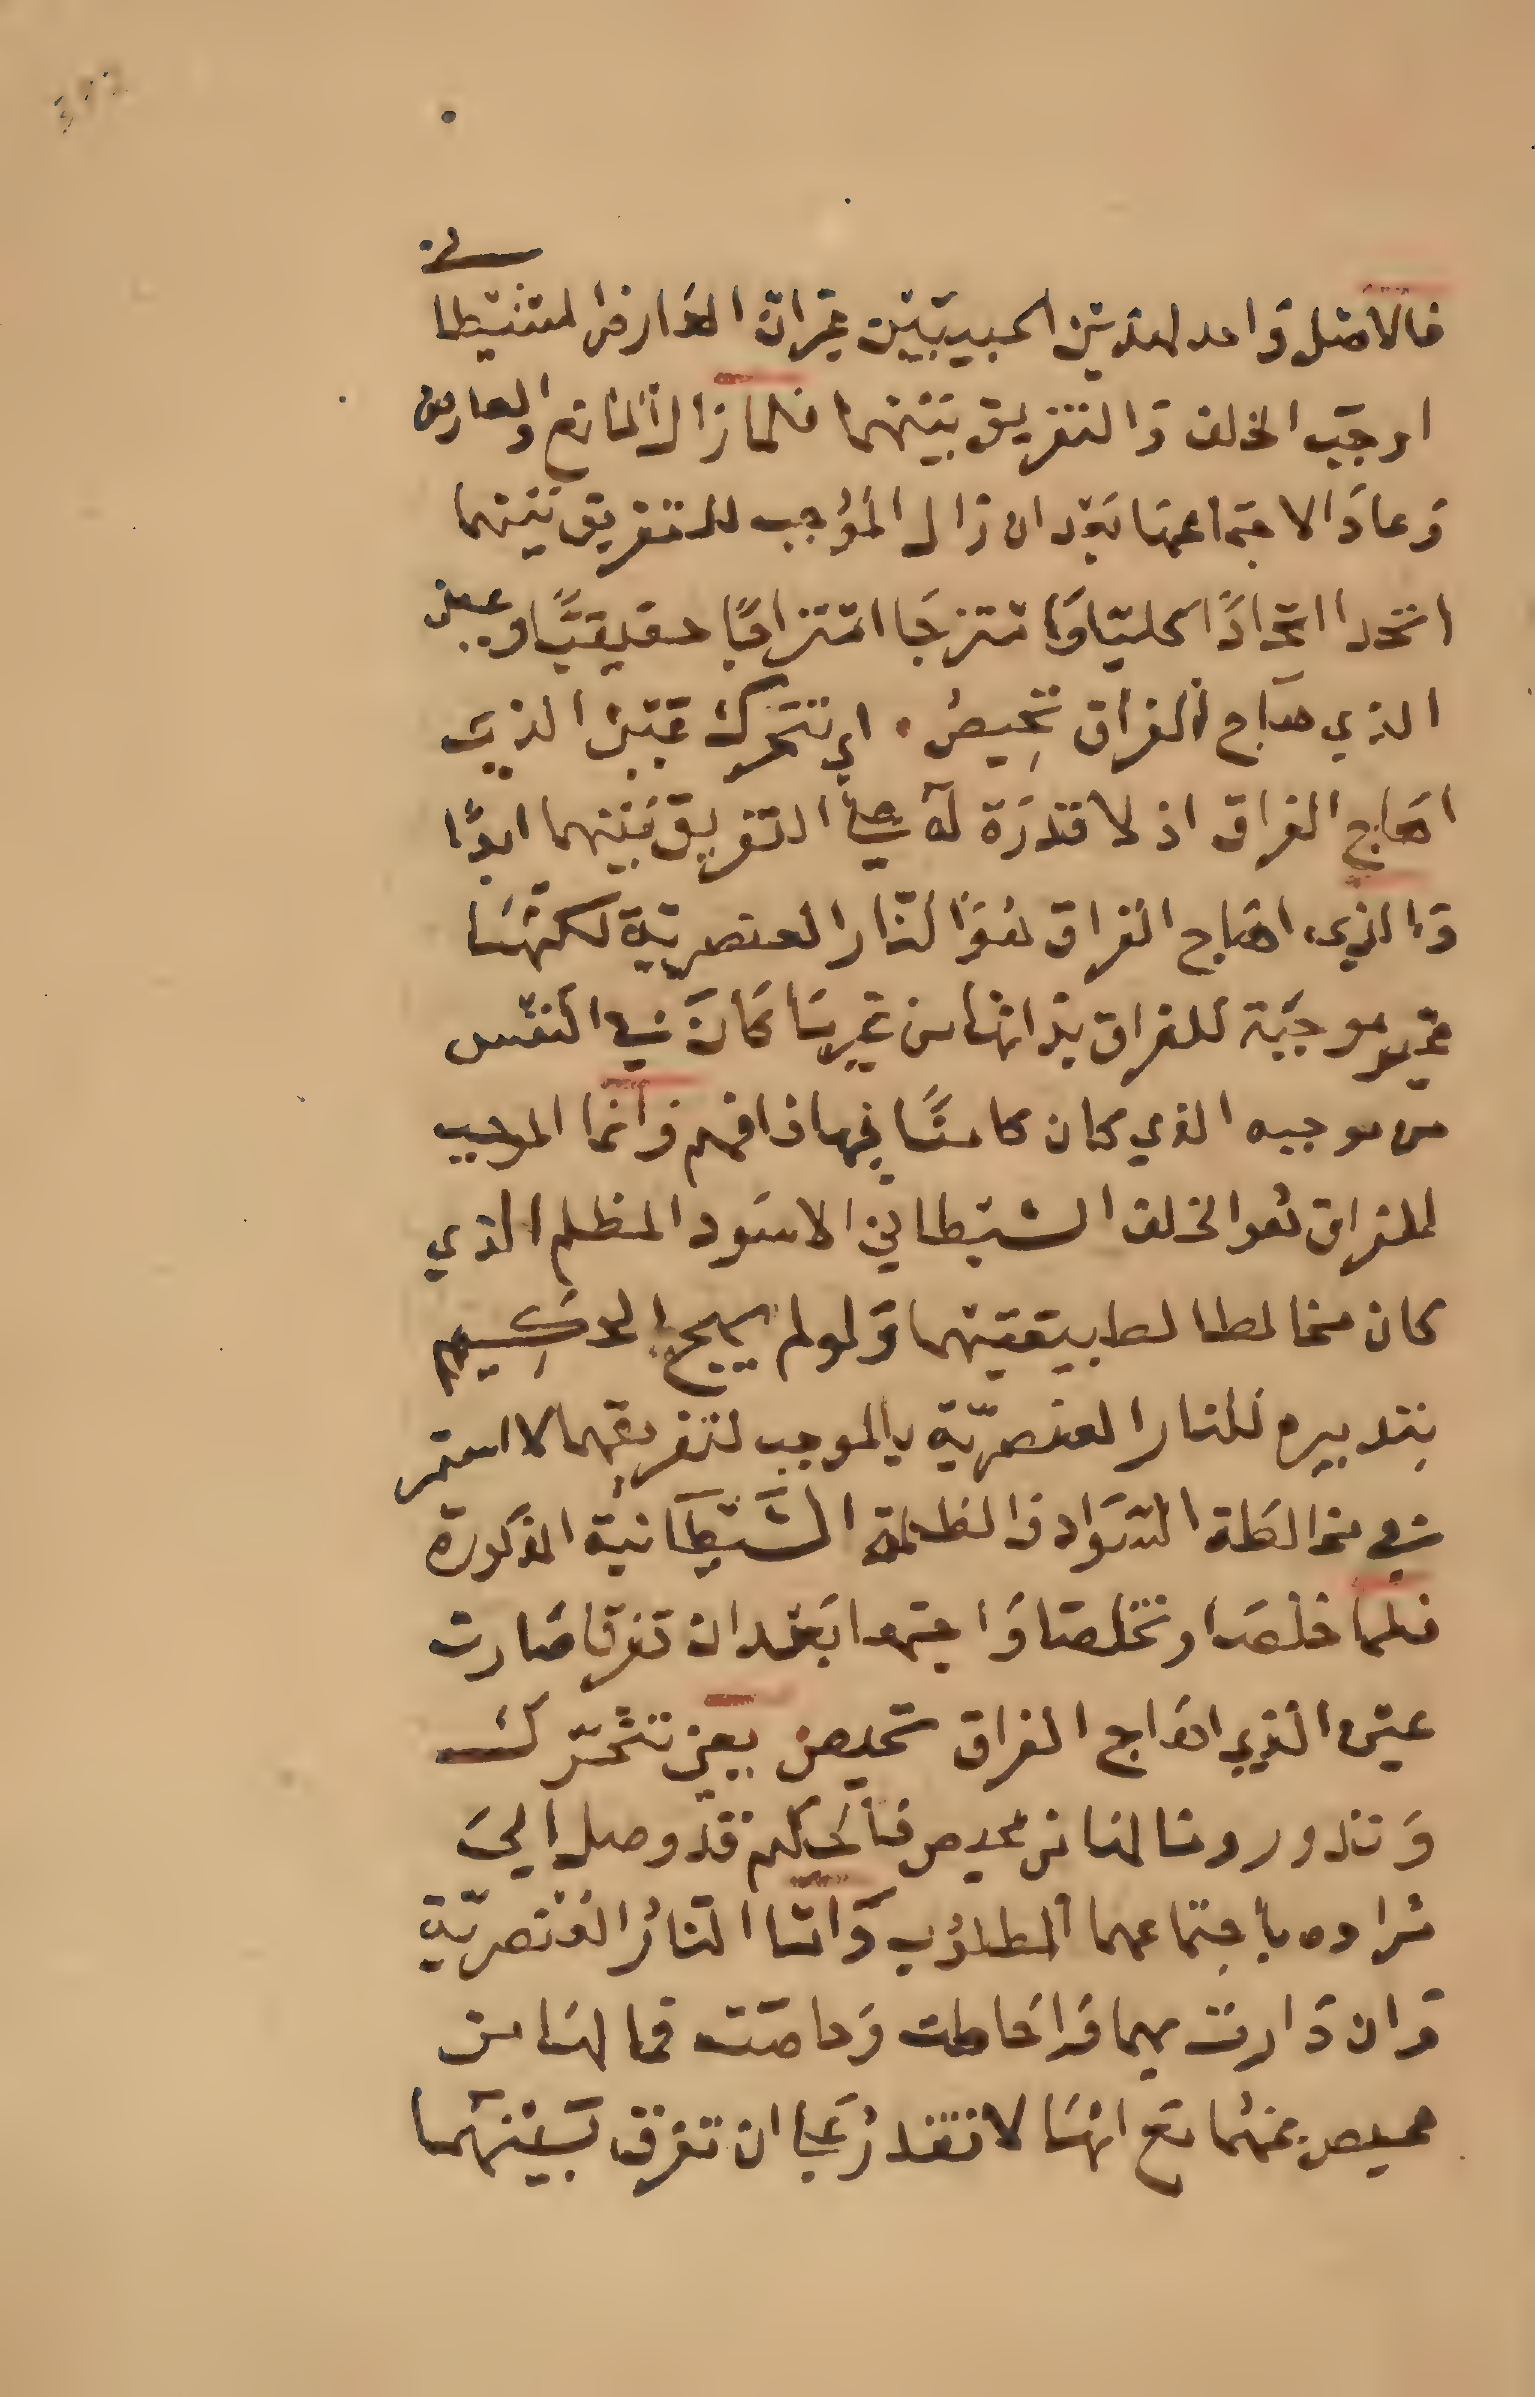 فالاصل واحد لهذين الحبيبين غير ان العارض الشيطا
ني
اوجب الخلف والتفريق بينهما فلما زال المانع والعارض
وعاد الاجتماعهما بعد ان زال الموجب للتفريق بينهما
اتحدا اتحادًا كليّا وامتزجَا امتزاجًا حقيقيًّا وعين
الذي هاج الفراق تحيص . اي تتحرك عين الذي
اهاج الفراق اذ لا قدرة له على التفريق بينهما ابدًا
والذي اهاج الفراق هو النار العنصرية لكنها
غير موجبة للفراق بذاتها من غير ما كان في النفس
من موجبه الذي كان كامنًا فيها فافهم وانما الموجب
للفراق هو الخلف الشيطاني الاسود المظلم الذي
كان مخالطا لطبيعتيهما ولو لم يهيج الحكيم
بتدبيره للنار العنصريّة بالموجب لتفريقهما لا استمر
في مخالطة السواد والظلمة الشيطانية المذكورة
فلما خلصا وتخلصا واجتمعا بعد ان تفرقا صارت
عين الذي اهاج الفراق تحيص يعني تتحرّك
وتدور وما لها من محيص فالحكيم قد وصل الي
مراده باجتماعهما المطلوب واما النار العنصريّة
وان دارت بهما واحاطت وحاصت فما لها من
محيص عنهما مع انها لا تقدر على ان تفرق بينهما